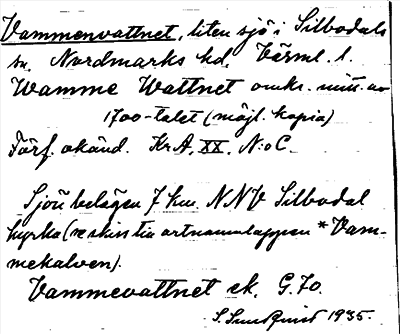 Vammenvattnet, liten sjö i Silbodals
sn, Nordmarks hd, Värml. l.
Wamme Wattnet omkr. mitt. av
1700-talet (möjl. kopia)
Förf. okänd. Kr A, XX, N:o C.
Sjön belägen 7 km. NNV Silbodal
kyrka (se skiss på ortnamnslappen *Vam-
mekalven).
Vammevattnet ek. G. 70.
S. Sundquist 1935.